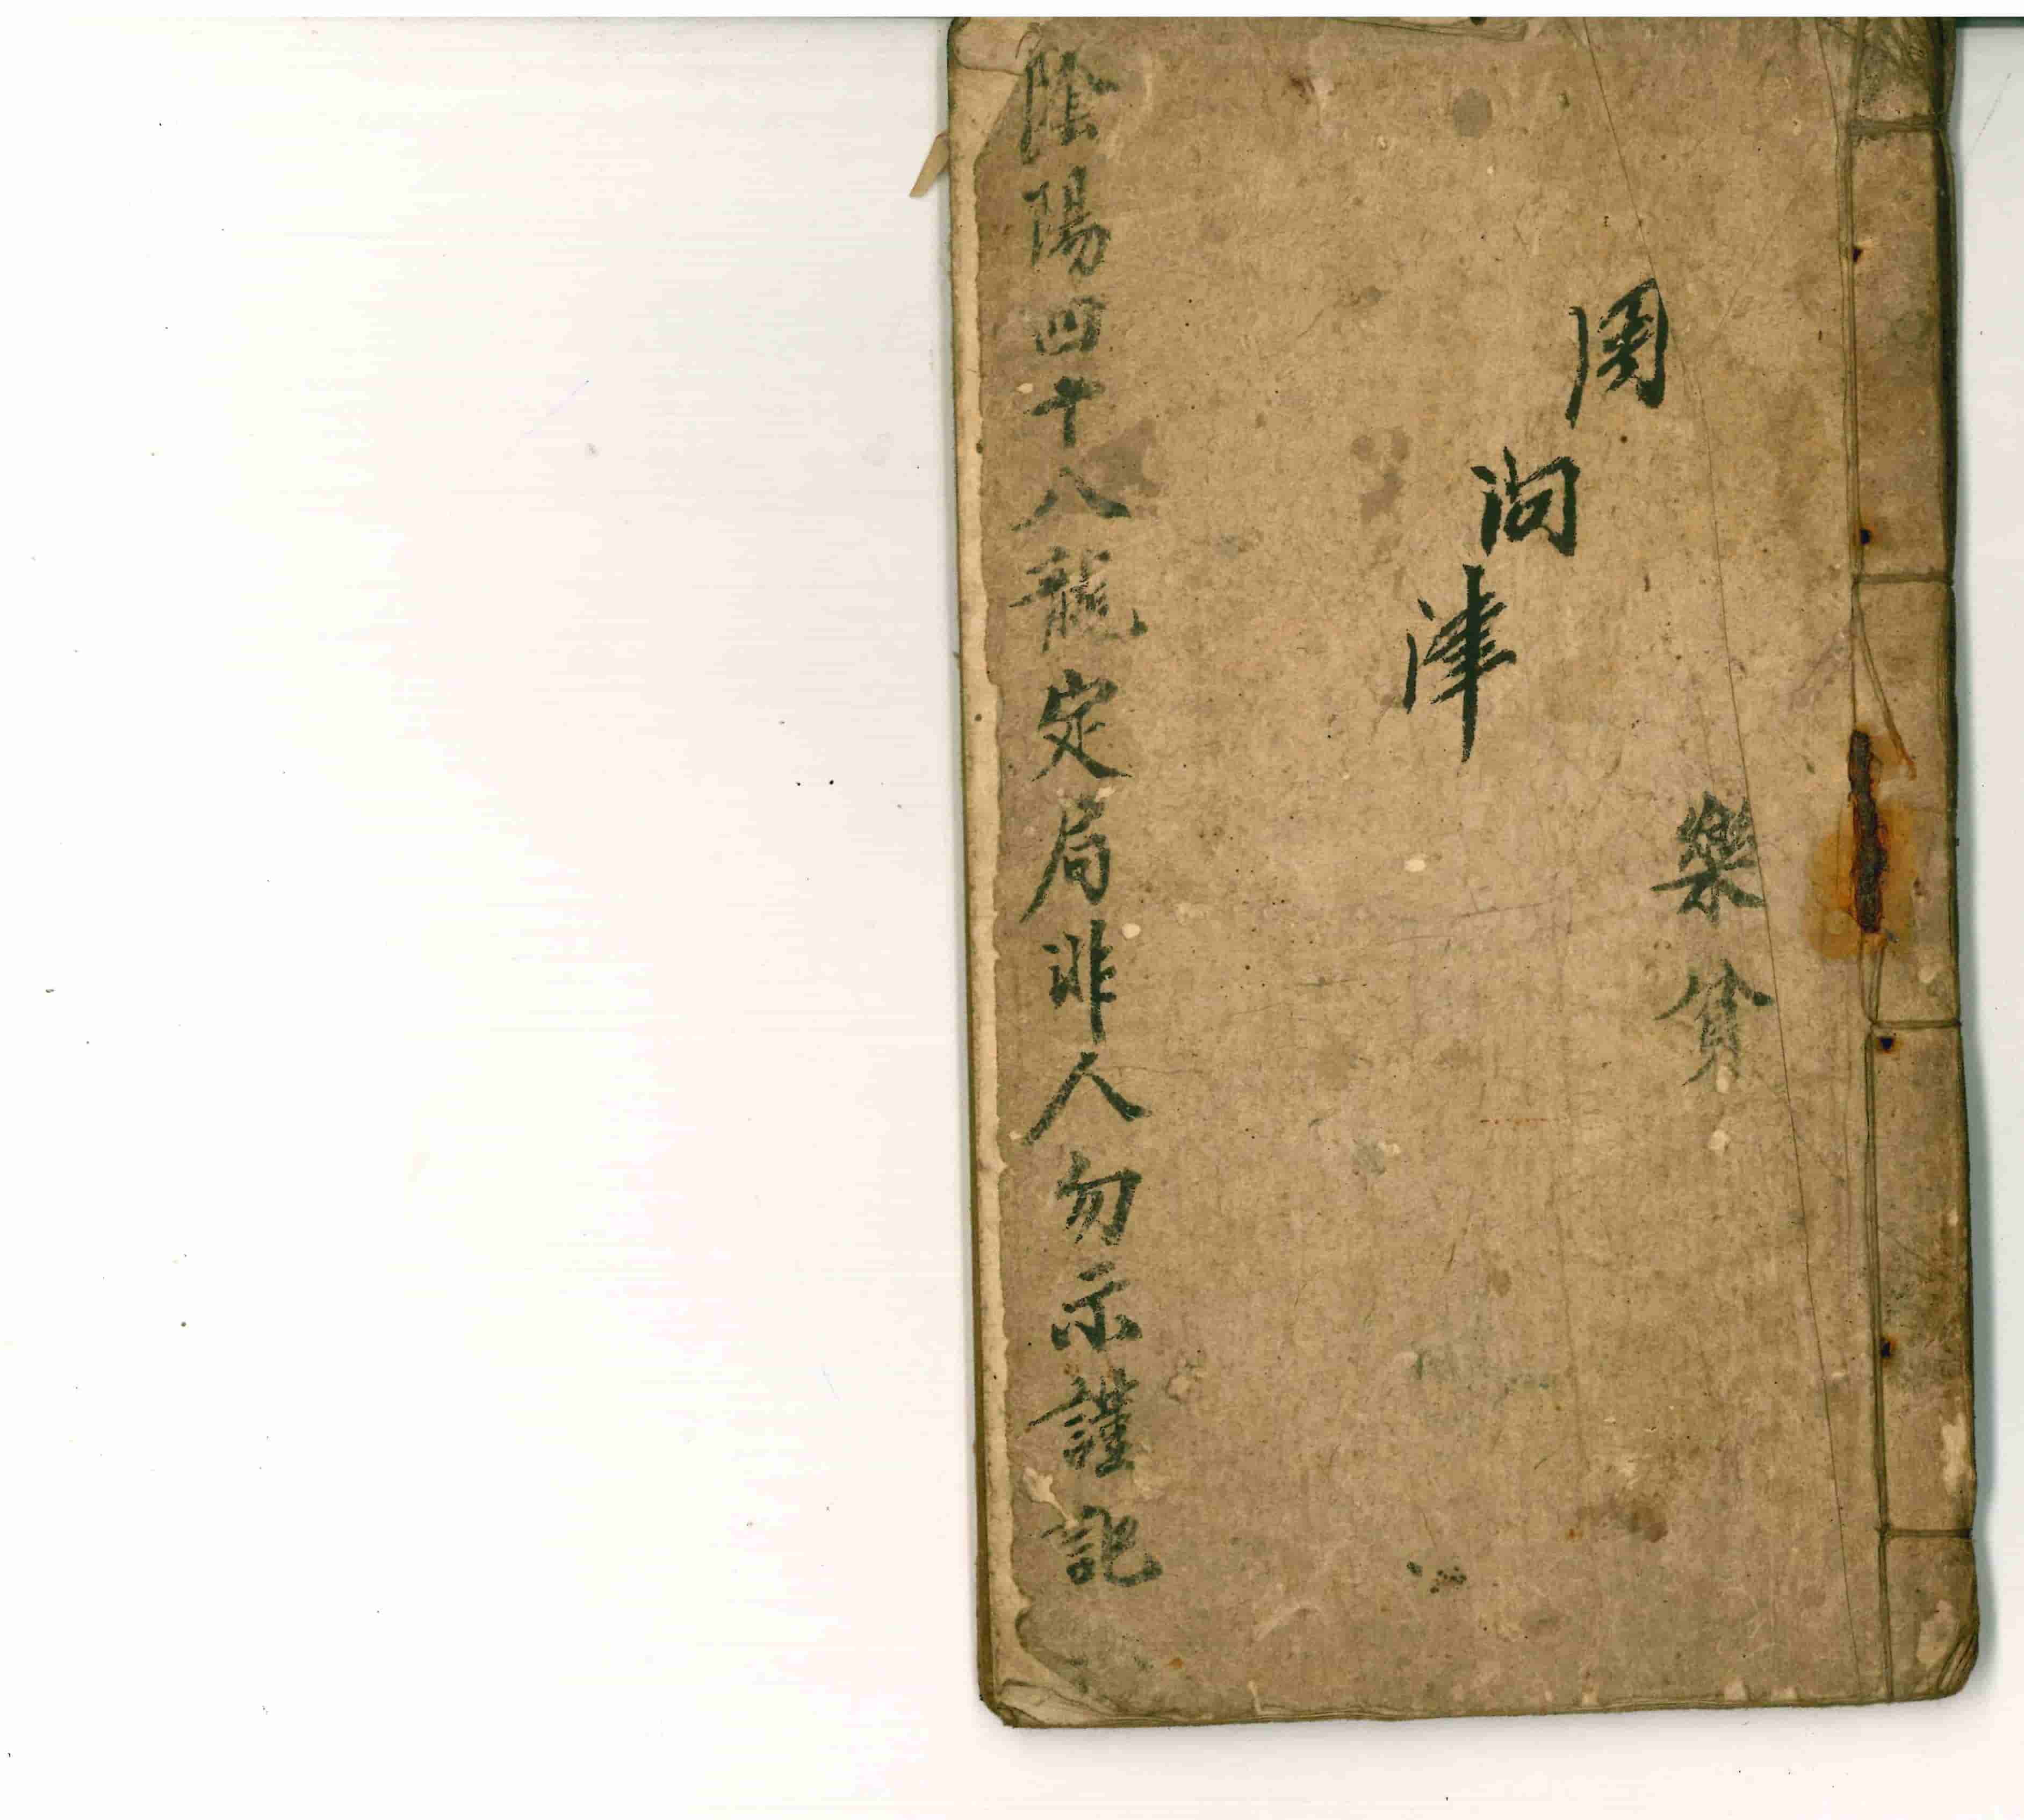 樂貧
周問津
陰陽四十八龍定局非人勿示謹記